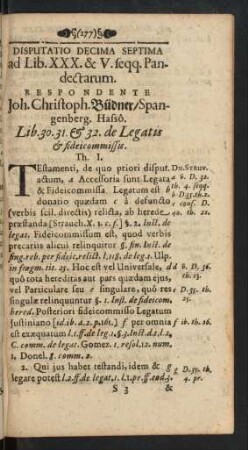 §(277)§
DISPUTATIO DECIMA SEPTIMA
ad Lib. XXX. & V. seqq. Pan-
dectarum.
RESPONDENTE
Joh. Christoph. Büdner/Span-
genberg. Hasiô.
Lib. 30. 31. & 32. de Legatis
& fideicommissis.
Th. I.
TEstamenti, de quo priori disput.
actum, a Accessoria sunt Legata
& Fideicommissa. Legatum est b
donatio quædam c à defuncto
(verbis scil. directis) relicta, ab herede
præstanda [Strauch. X. 1. c. f.] §. 2. Inst. de
legat. Fideicommissum est, quod verbis
precariis alicui relinquitur §. fin. Inst. de
sing. reb. per fideic. relict. l. 118. de leg. 1. Ulp.
in fragm. tit. 25. Hoc est vel Universale, d d
quô tota hereditas aut pars quædam ejus,
vel Particulare seu e singulare, quô res
singulæ relinquuntur §. 1. Inst. de fideicom.
hered. Posteriori fideicommisso Legatum
Justiniano [id. ib. a. 2. p. th.] f per omnia f ib. th. 16.
est exæquatum l. 1. ff. de leg. 1. §. 3. Inst. d. t. l. 2.
C. comm. de legat. Gomez. 1. resol. 12. num.
1. Donel. g. comm. 2.
2. Qui jus habet testandi, idem & g
legare potest l. 2. ff. de legat. 1. l. 1. pr. ff. eod. 3.
S 3 &